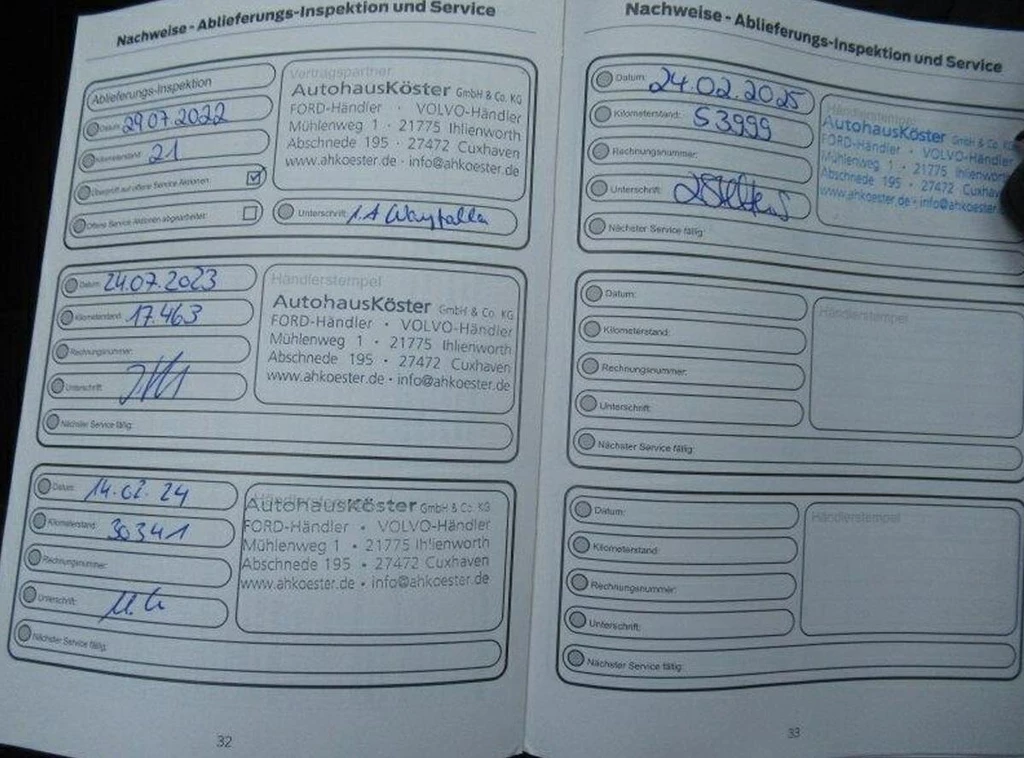 Nachweise - Ablieferungs-Inspektion und Service
Ablieferungs-Inspektion
Datum: 29.07.2022
Kilometerstand: 21
Überprüft auf offene Service Aktionen:
Offene Service Aktionen abgearbeitet:
Vertragspartner
AutohausKöster GmbH & Co. KG
FORD-Händler · VOLVO-Händler
Mühlenweg 1 · 21775 Ihlienworth
Abschnede 195 · 27472 Cuxhaven
www.ahkoester.de · info@ahkoester.de
Unterschrift:
Datum: 24.07.2023
Kilometerstand: 17.463
Rechnungsnummer:
Unterschrift:
Nächster Service fällig:
Händlerstempel
AutohausKöster GmbH & Co. KG
FORD-Händler · VOLVO-Händler
Mühlenweg 1 · 21775 Ihlienworth
Abschnede 195 · 27472 Cuxhaven
www.ahkoester.de · info@ahkoester.de
Datum: 14.02.24
Kilometerstand: 30341
Rechnungsnummer:
Unterschrift:
Nächster Service fällig:
Händlerstempel
AutohausKöster GmbH & Co. KG
FORD-Händler · VOLVO-Händler
Mühlenweg 1 · 21775 Ihlienworth
Abschnede 195 · 27472 Cuxhaven
www.ahkoester.de · info@ahkoester.de
32
Nachweise - Ablieferungs-Inspektion und Service
Datum: 24.02.2025
Kilometerstand: 53999
Rechnungsnummer:
Unterschrift:
Nächster Service fällig:
Händlerstempel
AutohausKöster GmbH & Co.
FORD-Händler · VOLVO-Händler
Mühlenweg 1 · 21775 Ihlienworth
Abschnede 195 · 27472
www.ahkoester.de · info@ahkoester.de
Datum:
Kilometerstand:
Rechnungsnummer:
Unterschrift:
Nächster Service fällig:
Händlerstempel
Datum:
Kilometerstand:
Rechnungsnummer:
Unterschrift:
Nächster Service fällig:
Händlerstempel
33